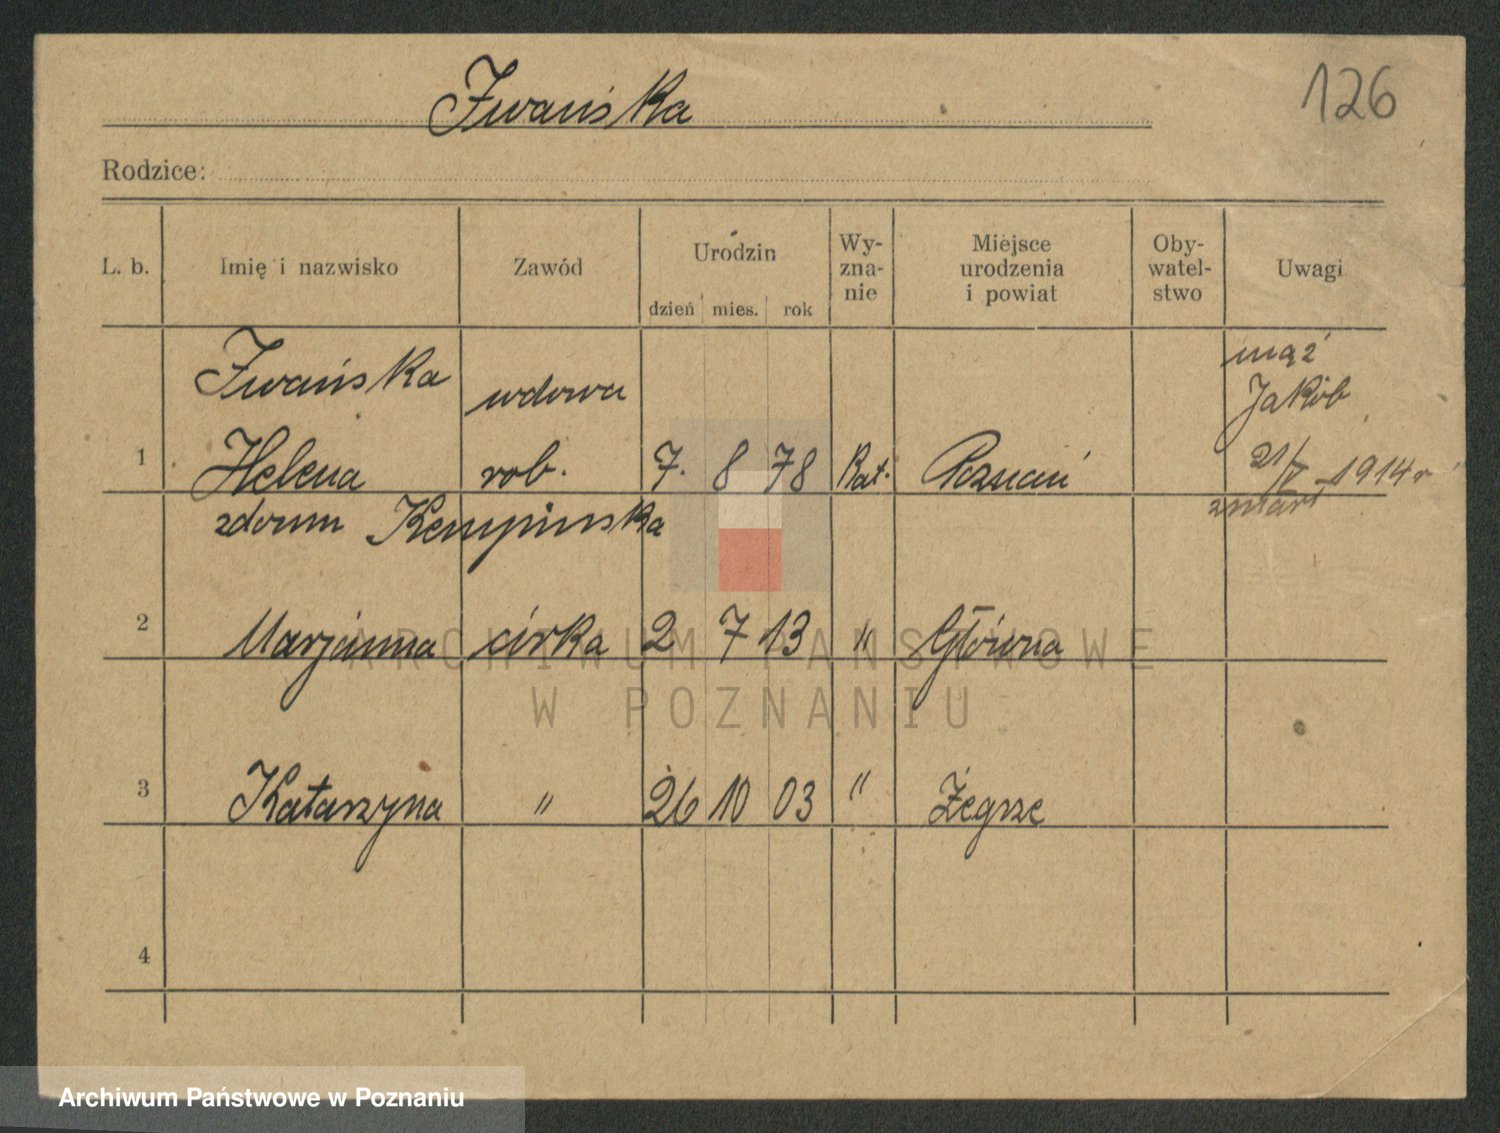 Iwańska
126
Rodzice:
L. b.
Imię i nazwisko
Zawód
Urodzin
dzień mies. rok
Wy-
zna-
nie
Miejsce
urodzenia
i powiat
Oby-
watel-
stwo
Uwagi
1
Iwańska
Helena
zdoum Kempinska
wdowa
rob.
7. 8 78
Kat.
Poznań
mąż
Jakób
21/V 1914 r
zmarł
2
Marjanna
córka
2 7 13
"
Główna
3
Katarzyna
"
26 10 03
"
Żegrze
4
ARCHIWUM PAŃSTWOWE
W POZNANIU
Archiwum Państwowe w Poznaniu